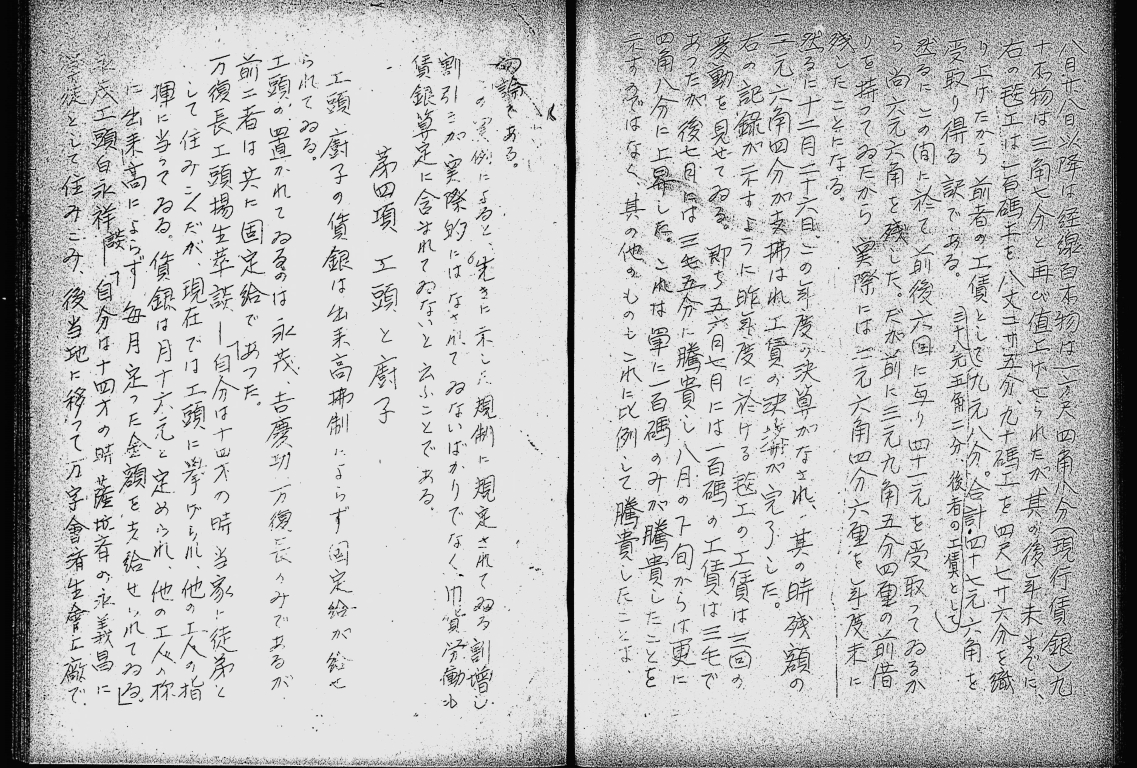 八月廿八日以降は経線百本物は一元四角八分(現行賃銀)九
十本物は三角七分と再び値上げせられたが其の後年末までに、
右の毯工は一百碼工を八丈二寸五分、九十碼工を四尺七寸六分を織
り上げたから前者の工債として九元八分。合計四十七元六角を
三十八元五角二分、後者の工賃として
受取り得る訳である。
然るにこの間に於て前後六回に亙り四十一元を受取ってゐるか
ら尚六元六角を残した。だが前に三元九角五分四厘の前借
りを持ってゐたから、実際には二元六角四分六厘を年度末に
残したことになる。
然るに十二月二十六日、この年度の決算がなされ、其の時残額の
二元六角四分が支拂はれ工賃の決算が完了した。
右の記録が示すように昨年度に於ける毯工の工賃は三回の
変動を見せてゐる。即ち五六月七月には一百碼の工賃は三毛で
あったが後七月には三毛五分に騰貴し八月の下旬からは更に
四角八分に上昇した。これは單に一百碼のみが騰貴したことを
示すのではなく、其の他のものもこれに比例して騰貴したことは
勿論である。
の実例によると、先きに示した規制に規定されてゐる割増し
割引こが実際的にはなされてゐないばかりでなく、
賃銀算定に含まれてゐないと云ふことである。
第四項 工頭と廚子
工頭廚子の賃銀は出来高拂制によらず固定給が給せ
られてゐる。
工頭の置かれてゐるのは永茂、吉慶功、万復長のみであるが
前二者は共に固定給であった。
万復長工頭場生萃談―「自分は十四才の時当家に徒弟と
して住みこんだが、現在では工頭に挙げられ、他の工人の指
揮に当ってゐる。賃銀は月十六元と定められ、他の工人の様
に出来高によらず毎月定った金額を支給せられてゐる。」
永茂工頭白永祥談―「自分は十四才の時薩拉斉の永義昌に
学徒として住みこみ、後当地に移って万字會済生會工廠で、